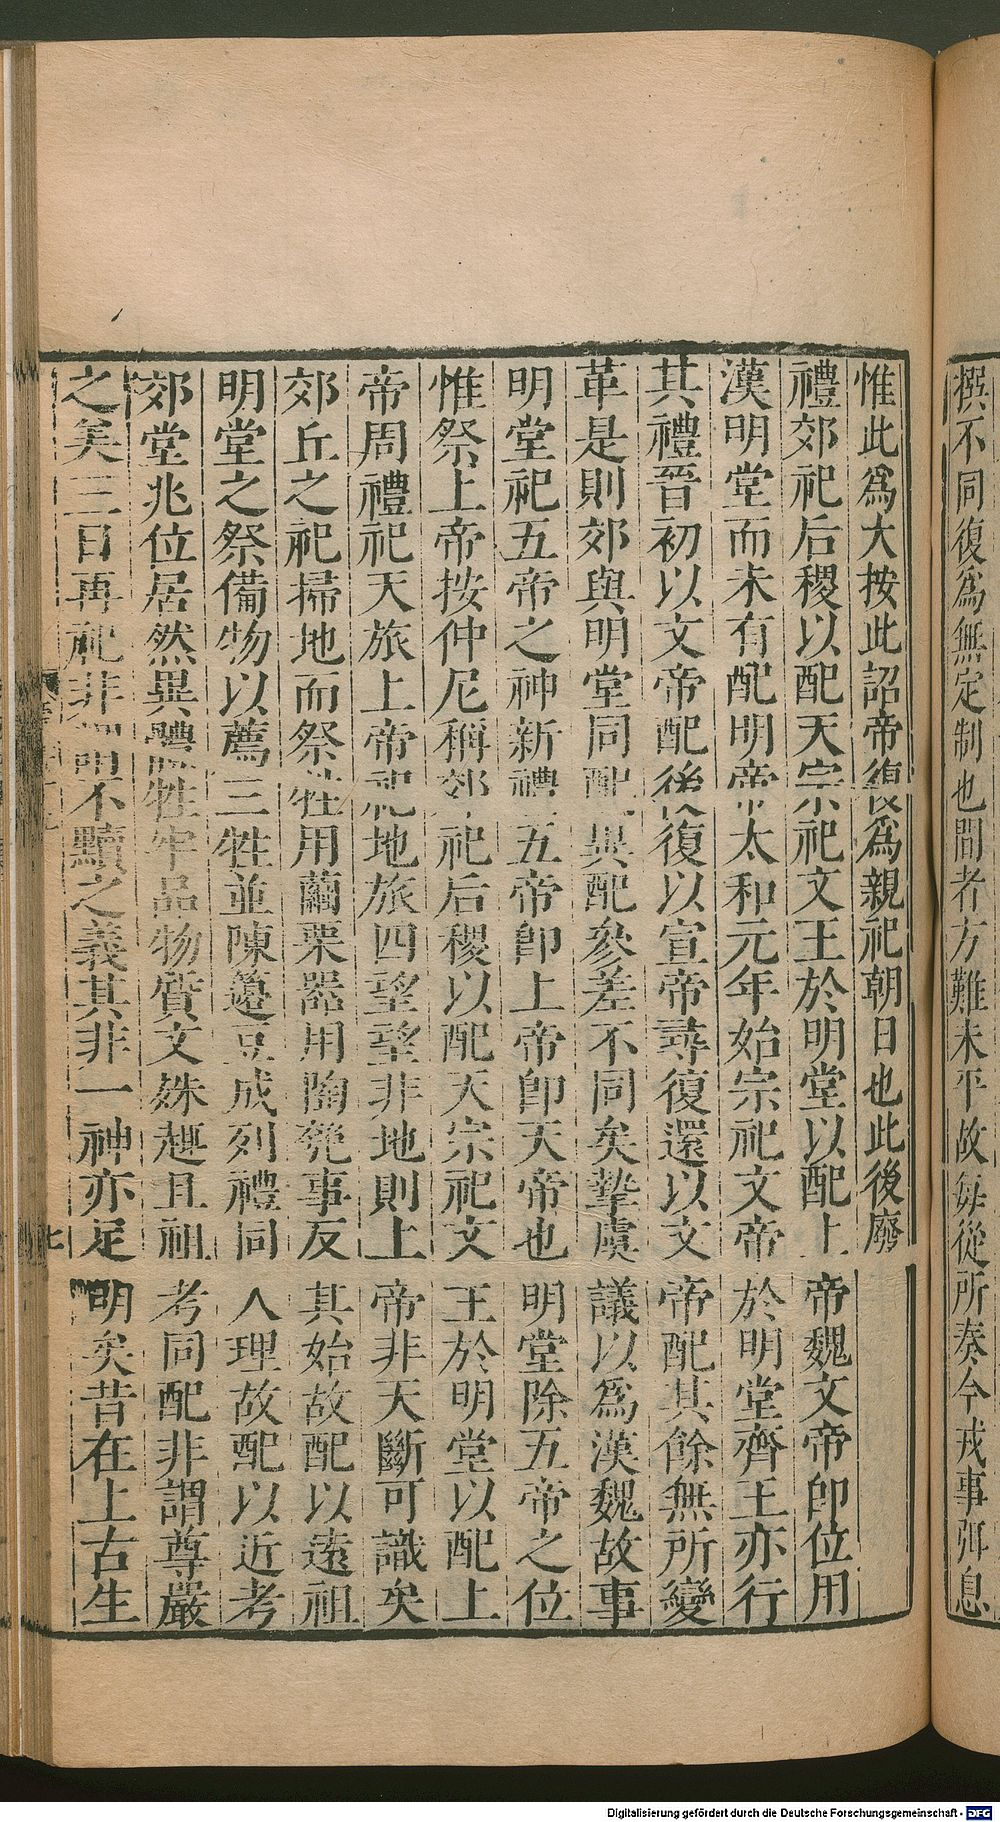 撰不同復為無定制也間者方難未平故每從所奏今戎事弭息
惟此為大按此詔帝復為親祀朝日也此後廢
禮郊祀后稷以配天宗祀文王於明堂以配上帝魏文帝即位用
漢明堂而未有配明帝太和元年始宗祀文帝於明堂齊王亦行
其禮晉初以文帝配後復以宣帝尋復還以文帝配其餘無所變
革是則郊與明堂同配異配參差不同矣摯虞議以為漢魏故事
明堂祀五帝之神新禮五帝即上帝即天帝也明堂除五帝之位
惟祭上帝按仲尼稱郊祀后稷以配天宗祀文王於明堂以配上
帝周禮祀天旅上帝祀地旅四望望非地則上帝非天斷可識矣
郊丘之祀掃地而祭牲用繭栗器用陶匏事反其始故配以遠祖
明堂之祭備物以薦三牲並陳籩豆成列禮同人理故配以近考
郊堂兆位居然異體牲牢品物質文姝趣且祖考同配非謂尊嚴
之美三日再祀非謂不黷之義其非一神亦足明矣昔在上古生
七
Digitalisierung gefördert durch die Deutsche Forschungsgemeinschaft - DFG